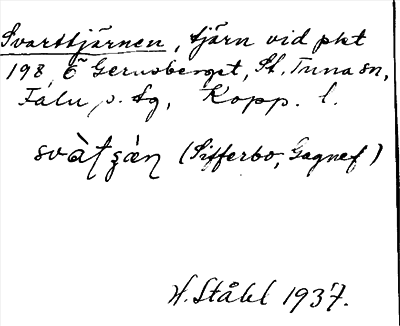 Svarttjärnen, tjärn vid pkt
198 Ö Gerusberget, St. Tuna sn,
Falu s. dg, Kopp. l.
svàtʂȧ̀n (Sifferbo, Gagnef)
H. Ståhl 1937.